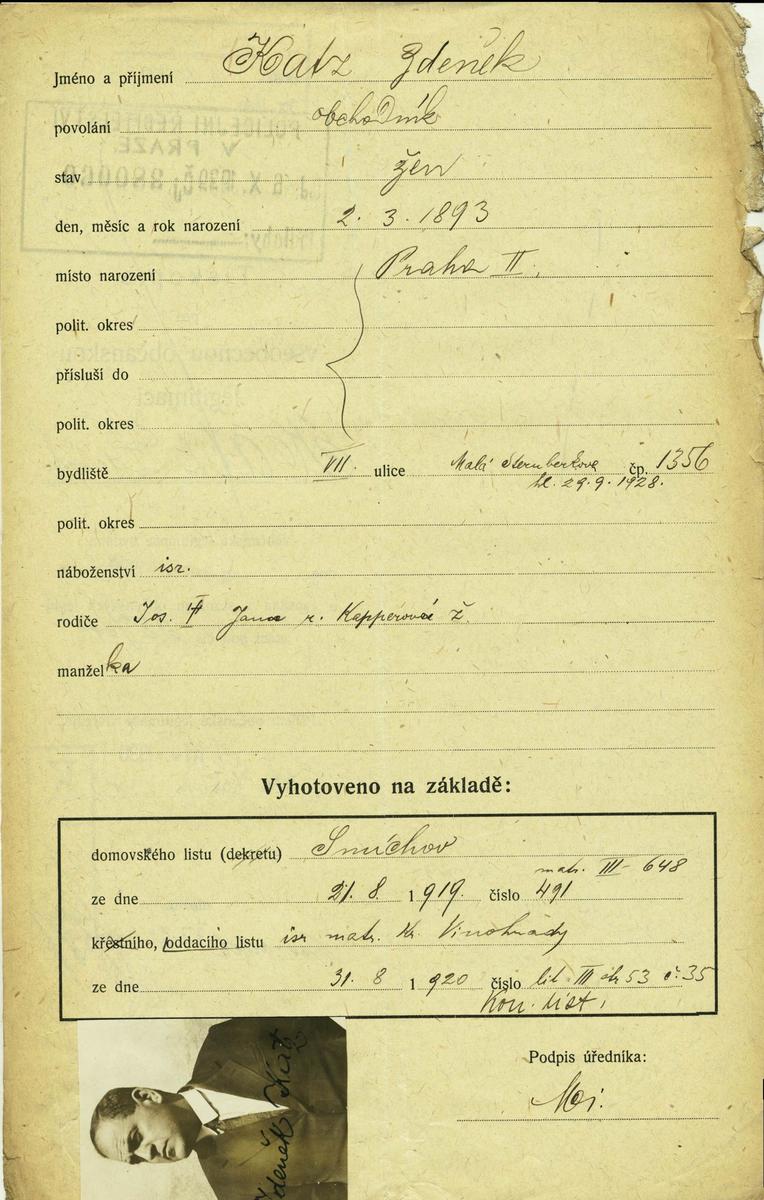 Jméno a příjmení Katz Zdeněk
povolání obchodník
stav žen
den, měsíc a rok narození 2. 3. 1893
místo narození Praha II.
polit. okres
přísluší do
polit. okres
bydliště VII. ulice Malá Šternberkova čp. 1356
hl. 29.9.1928.
polit. okres
náboženství isr.
rodiče Jos. Jana r. Kapperová ž.
manželka
Vyhotoveno na základě:
domovského listu (dekretu) Smíchov
matr. III - 648
ze dne 21. 8. 1919. číslo 491
křestního, oddacího listu isr matr. Kr. Vinohrady
ze dne 31. 8 1920 číslo lit. III str 53 č. 35
Kon. list.
Podpis úředníka:
Zdeněk Katz